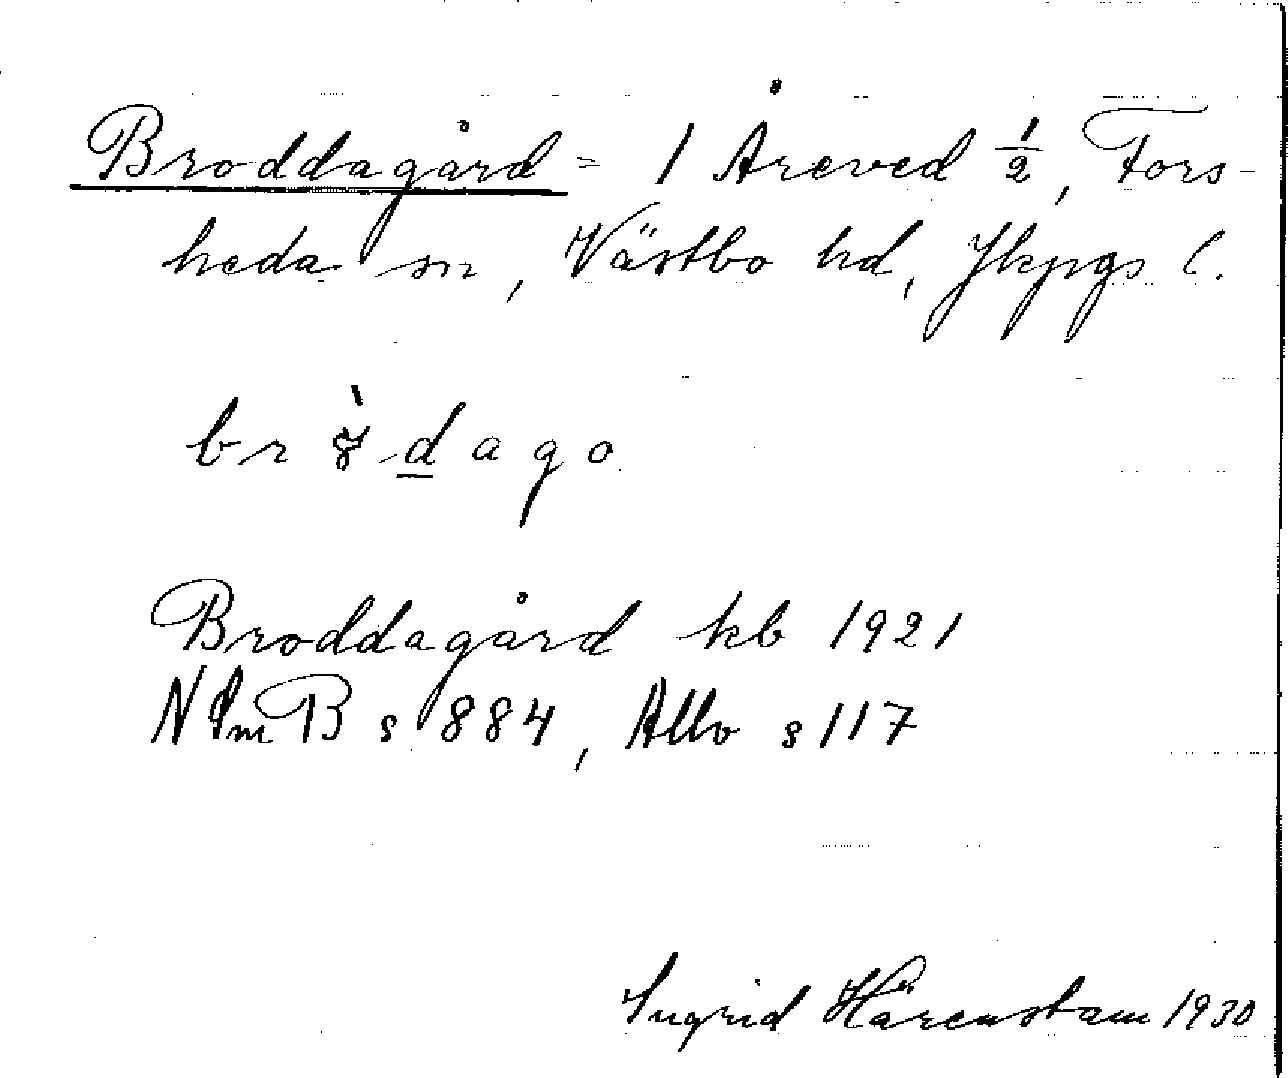 Broddagård = 1 Åreved 1/2, Fors-
heda sn, Västbo hd, Jkpgs l.
dago
Broddagård kb 1921
s 884, Allbo s 117
Ingrid Härenstam 1930